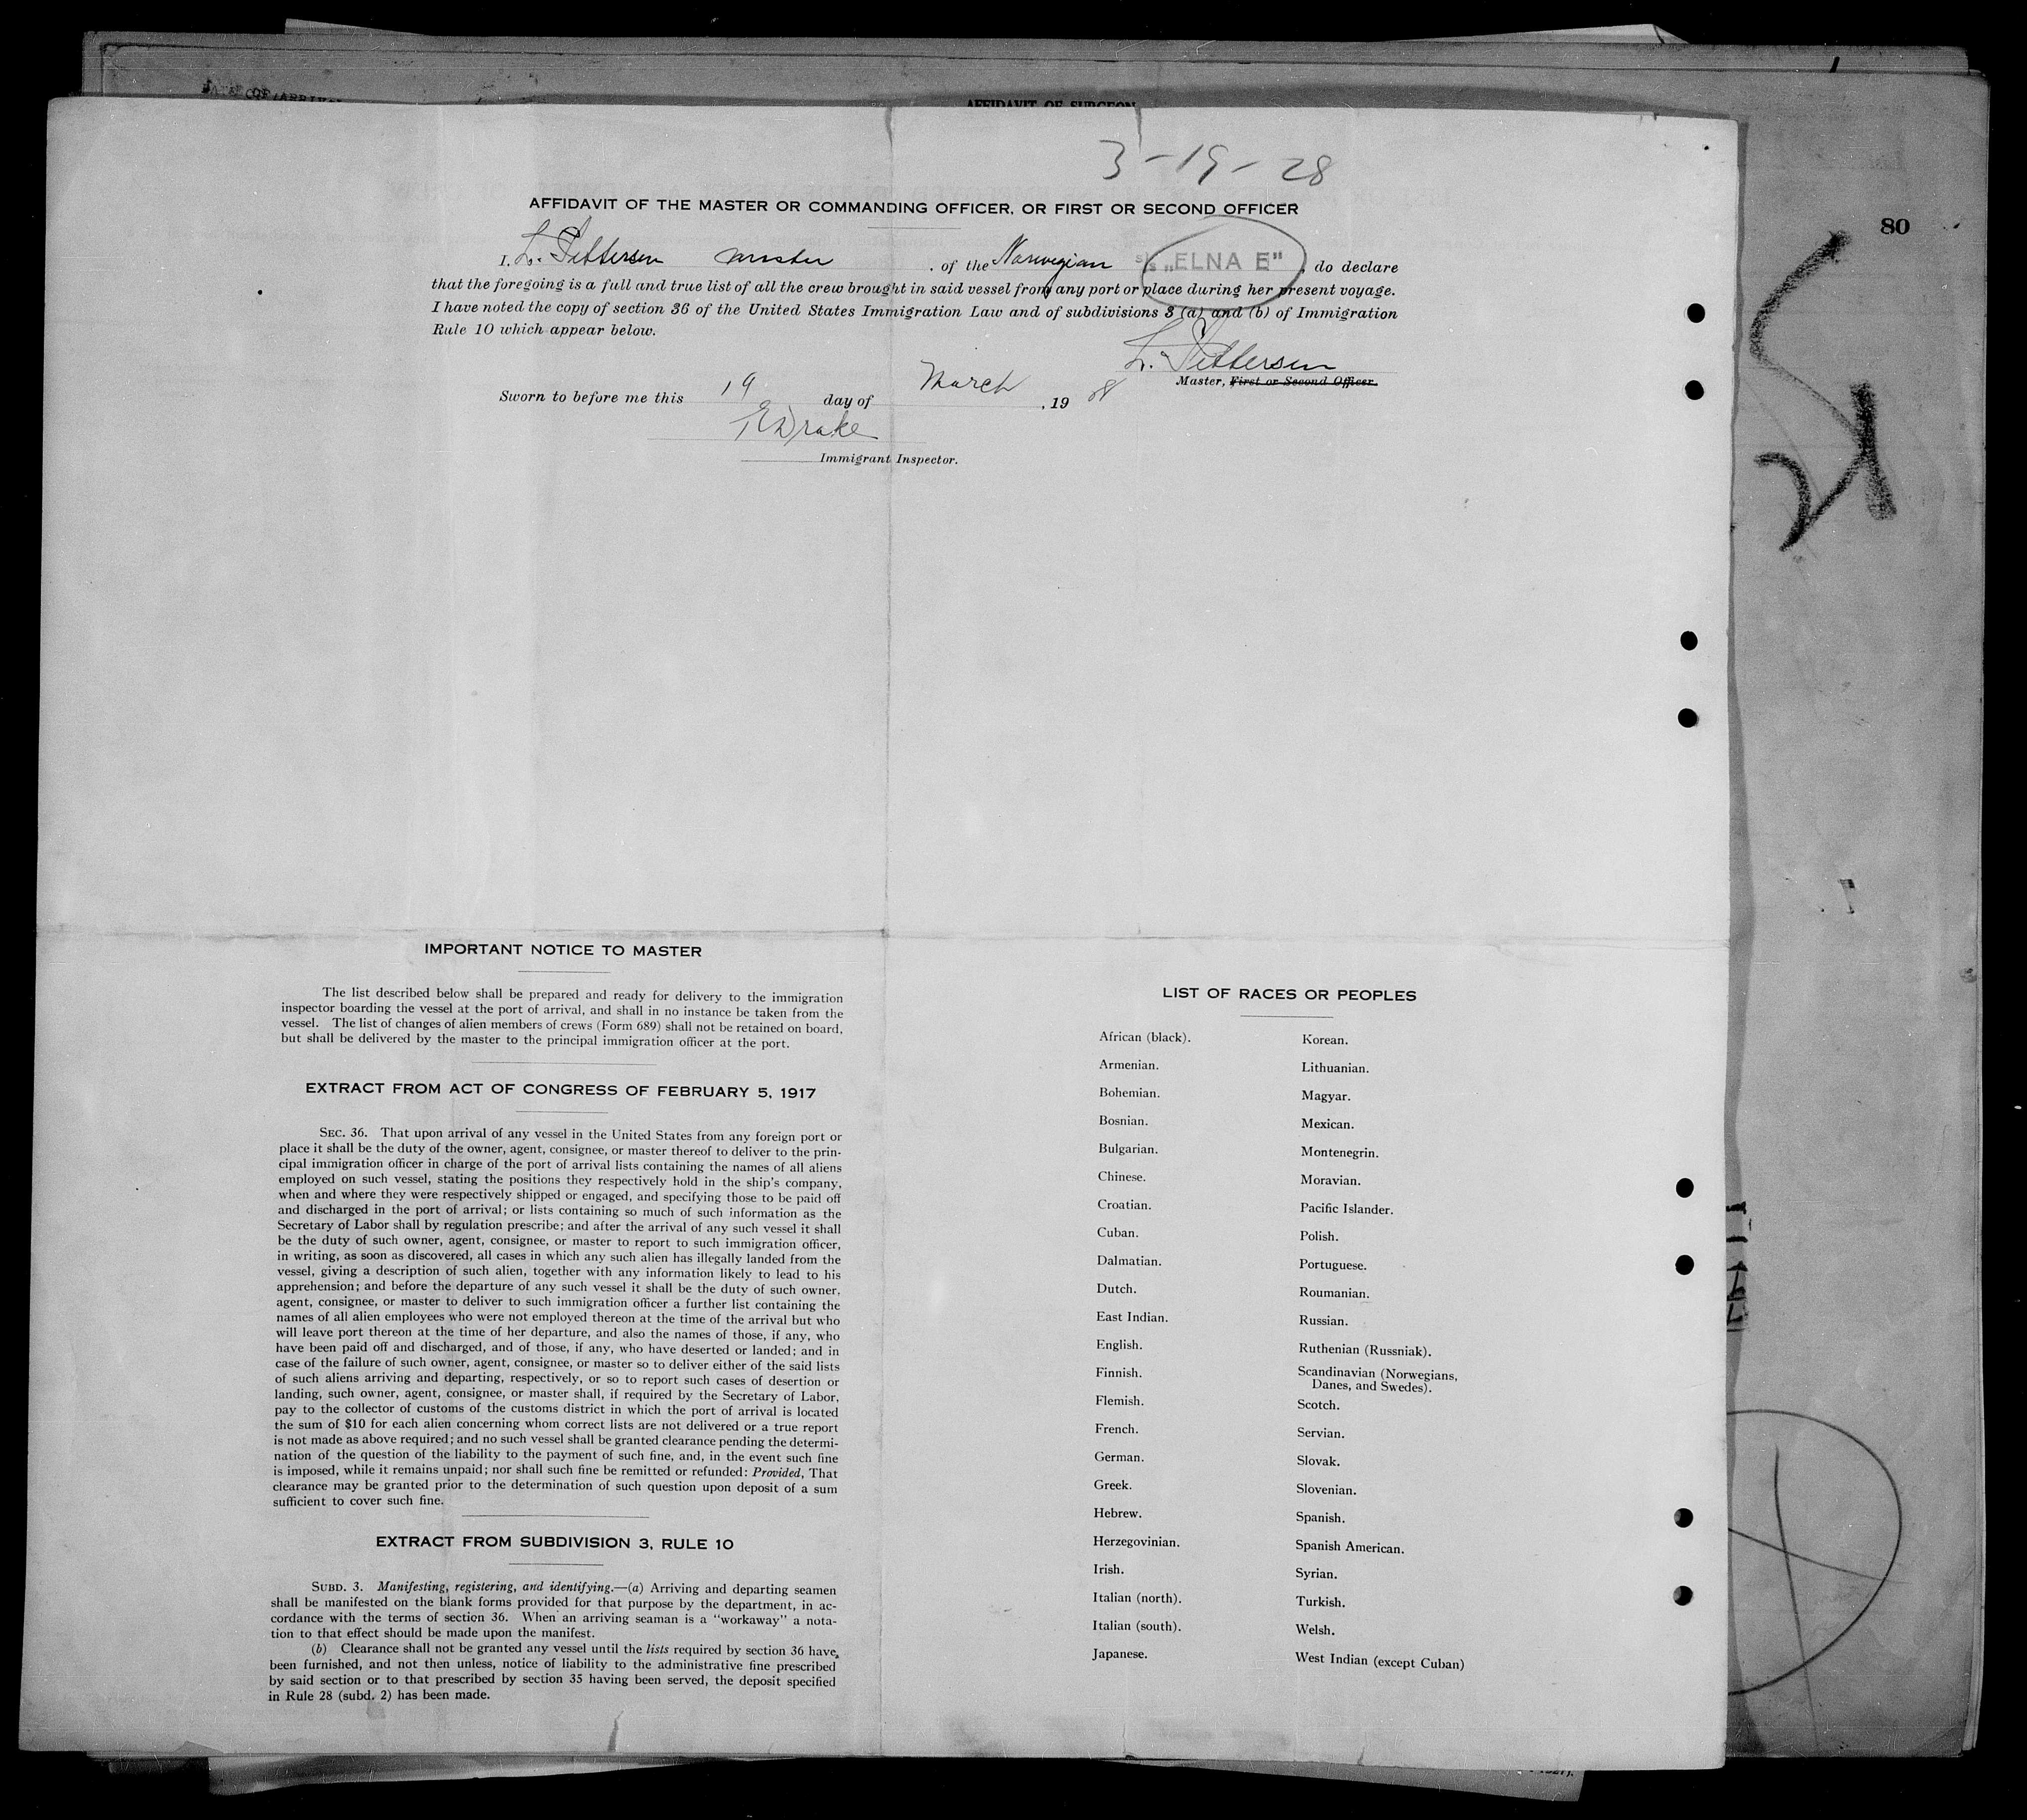 AFFIDAVIT OF SURGEON
3-19-28
80
AFFIDAVIT OF THE MASTER OR COMMANDING OFFICER, OR FIRST OR SECOND OFFICER
I, L. Pettersen master, of the Norwegian s/s „ELNA E", do declare
that the foregoing is a full and true list of all the crew brought in said vessel from any port or place during her present voyage.
I have noted the copy of section 36 of the United States Immigration Law and of subdivisions 3 (a) and (b) of Immigration
Rule 10 which appear below.
L. Pettersen
Master, First or Second Officer.
Sworn to before me this 19 day of March, 19 28
Drake
Immigrant Inspector.
IMPORTANT NOTICE TO MASTER
The list described below shall be prepared and ready for delivery to the immigration
inspector boarding the vessel at the port of arrival, and shall in no instance be taken from the
vessel. The list of changes of alien members of crews (Form 689) shall not be retained on board,
but shall be delivered by the master to the principal immigration officer at the port.
EXTRACT FROM ACT OF CONGRESS OF FEBRUARY 5, 1917
SEC. 36. That upon arrival of any vessel in the United States from any foreign port or
place it shall be the duty of the owner, agent, consignee, or master thereof to deliver to the prin-
cipal immigration officer in charge of the port of arrival lists containing the names of all aliens
employed on such vessel, stating the positions they respectively hold in the ship's company,
when and where they were respectively shipped or engaged, and specifying those to be paid off
and discharged in the port of arrival; or lists containing so much of such information as the
Secretary of Labor shall by regulation prescribe; and after the arrival of any such vessel it shall
be the duty of such owner, agent, consignee, or master to report to such immigration officer,
in writing, as soon as discovered, all cases in which any such alien has illegally landed from the
vessel, giving a description of such alien, together with any information likely to lead to his
apprehension; and before the departure of any such vessel it shall be the duty of such owner,
agent, consignee, or master to deliver to such immigration officer a further list containing the
names of all alien employees who were not employed thereon at the time of the arrival but who
will leave port thereon at the time of her departure, and also the names of those, if any, who
have been paid off and discharged, and of those, if any, who have deserted or landed; and in
case of the failure of such owner, agent, consignee, or master so to deliver either of the said lists
of such aliens arriving and departing, respectively, or so to report such cases of desertion or
landing, such owner, agent, consignee, or master shall, if required by the Secretary of Labor,
pay to the collector of customs of the customs district in which the port of arrival is located
the sum of $10 for each alien concerning whom correct lists are not delivered or a true report
is not made as above required; and no such vessel shall be granted clearance pending the determi-
nation of the question of the liability to the payment of such fine, and, in the event such fine
is imposed, while it remains unpaid; nor shall such fine be remitted or refunded: Provided, That
clearance may be granted prior to the determination of such question upon deposit of a sum
sufficient to cover such fine.
EXTRACT FROM SUBDIVISION 3, RULE 10
SUBD. 3. Manifesting, registering, and identifying.—(a) Arriving and departing seamen
shall be manifested on the blank forms provided for that purpose by the department, in ac-
cordance with the terms of section 36. When an arriving seaman is a "workaway" a nota-
tion to that effect should be made upon the manifest.
(b) Clearance shall not be granted any vessel until the lists required by section 36 have
been furnished, and not then unless, notice of liability to the administrative fine prescribed
by said section or to that prescribed by section 35 having been served, the deposit specified
in Rule 28 (subd. 2) has been made.
LIST OF RACES OR PEOPLES
African (black).
Armenian.
Bohemian.
Bosnian.
Bulgarian.
Chinese.
Croatian.
Cuban.
Dalmatian.
Dutch.
East Indian.
English.
Finnish.
Flemish.
French.
German.
Greek.
Hebrew.
Herzegovinian.
Irish.
Italian (north).
Italian (south).
Japanese.
Korean.
Lithuanian.
Magyar.
Mexican.
Montenegrin.
Moravian.
Pacific Islander.
Polish.
Portuguese.
Roumanian.
Russian.
Ruthenian (Russniak).
Scandinavian (Norwegians,
Danes, and Swedes).
Scotch.
Servian.
Slovak.
Slovenian.
Spanish.
Spanish American.
Syrian.
Turkish.
Welsh.
West Indian (except Cuban)